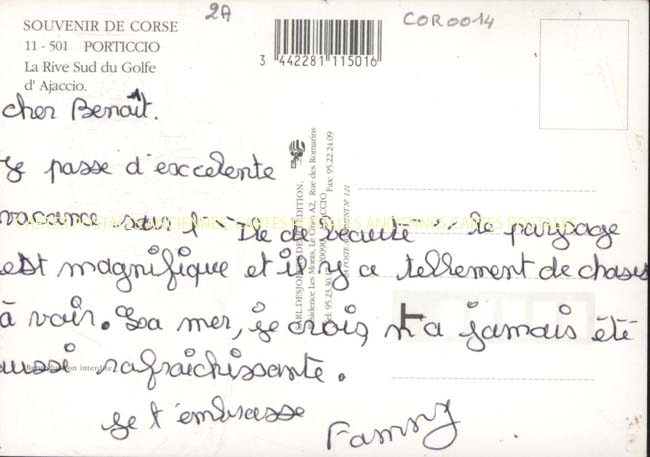 2A
COR0014
SOUVENIR DE CORSE
11 - 501 PORTICCIO
La Rive Sud du Golfe
d'Ajaccio.
3 442281 115016
cher Benoît.
Je passe d'excelente
vacance sur l' "Ile de beauté". Le paysage
est magnifique et il y a tellement de choses
à voir. La mer, je crois, n'a jamais été
aussi rafraichissante.
Je t'embrasse
Fanny
EDITION.
Résidence Les Monts, Le Cran A2, Rue des Romarins
Fax: 95.22.24.09
N° 121
interdite
CARTES POSTALES ANCIENNES CARTES POSTALES ANCIENNES CARTES POSTALES